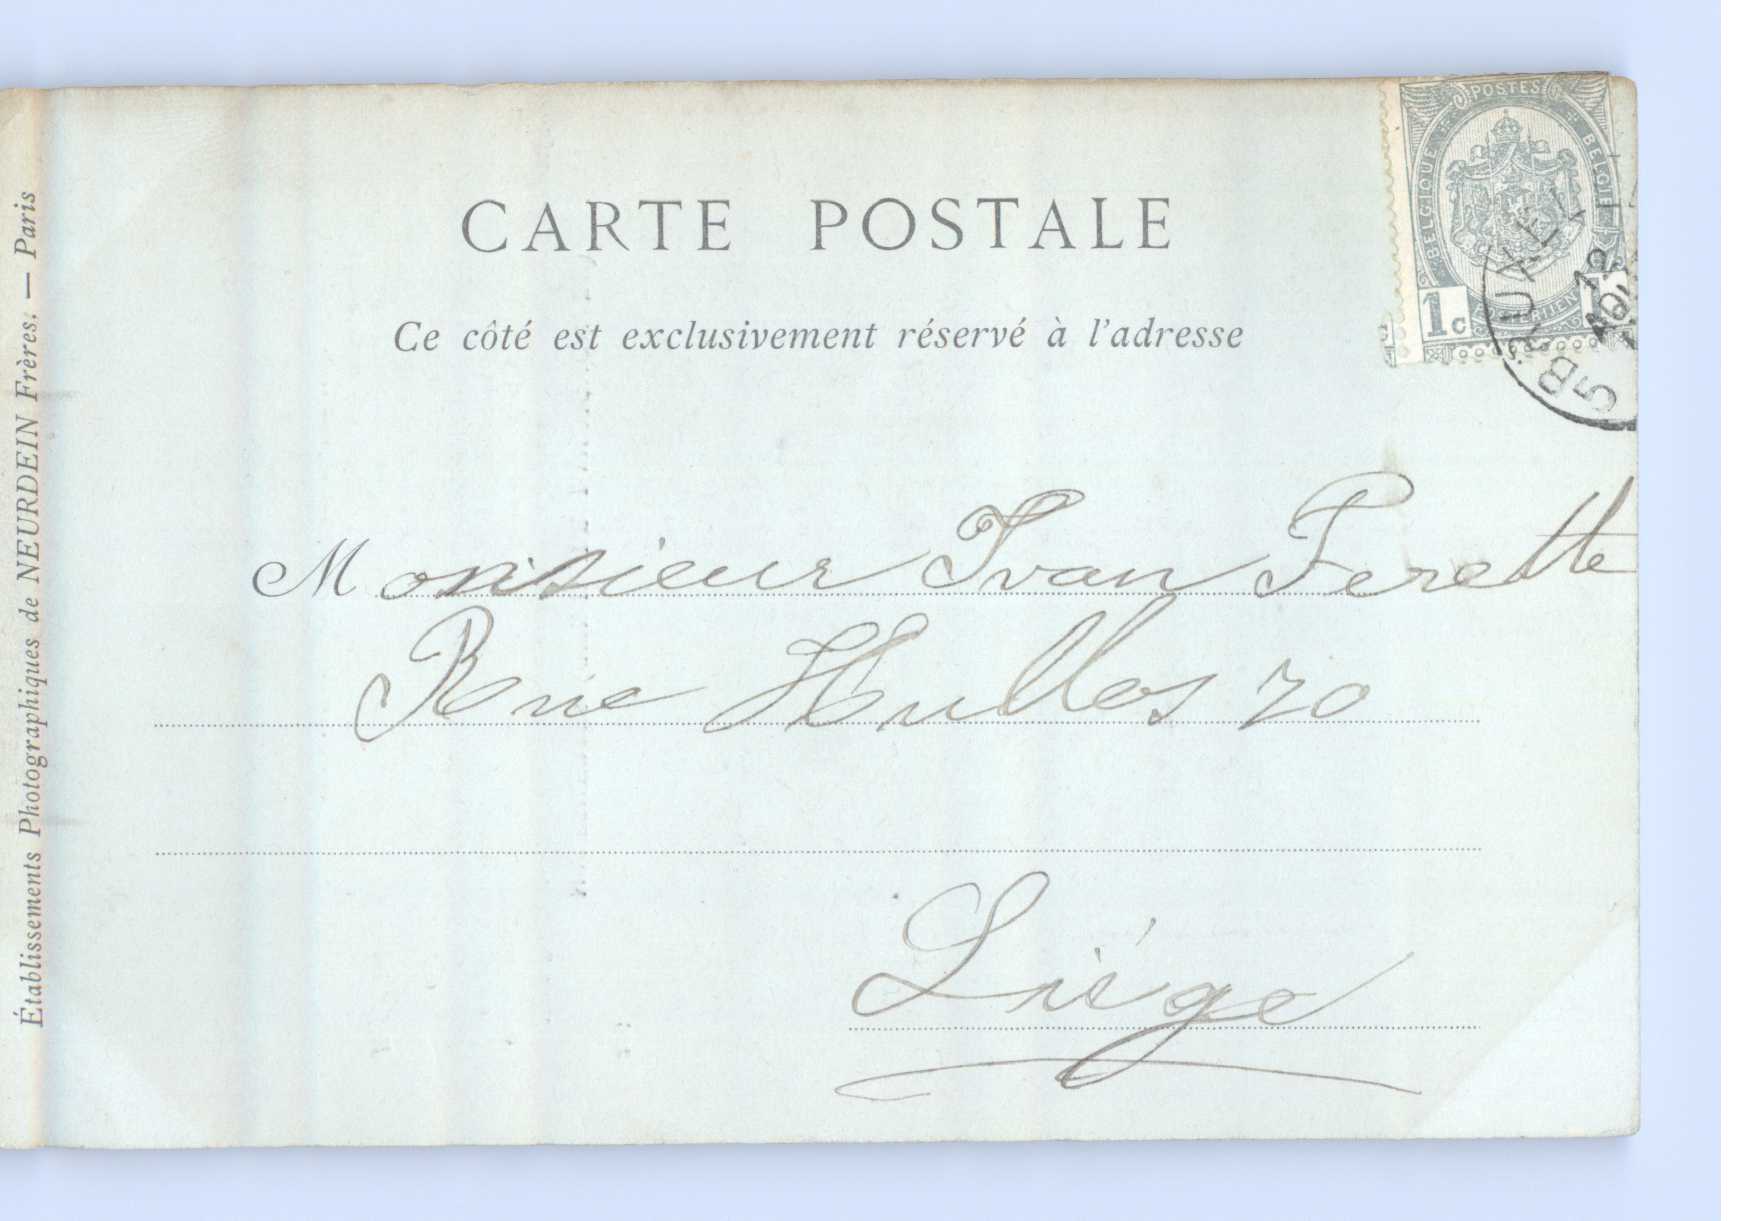 CARTE POSTALE
Ce côté est exclusivement réservé à l'adresse
POSTES
BELGIQUE BELGIË
1c
Monsieur Ivan Ferette
Rue Hulles 70
Liége
Établissements Photographiques de NEURDEIN Frères. — Paris